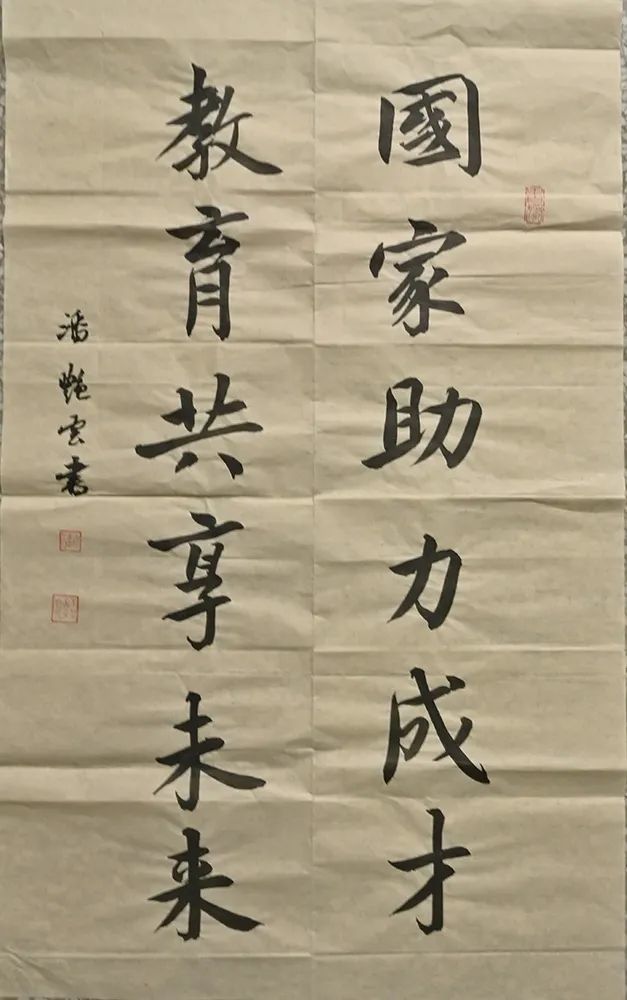 國家助力成才
教育共享未来
潘艳云書